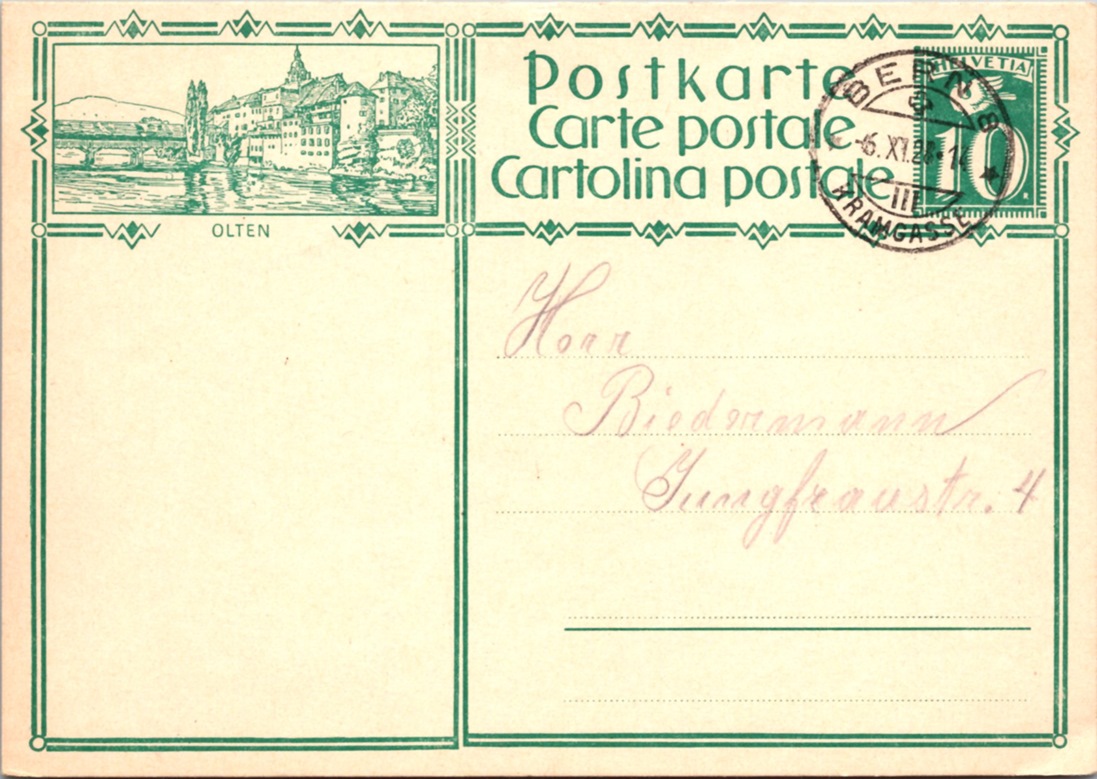 OLTEN
Postkarte
Carte postale
Cartolina postale
HELVETIA
10
BERN 8
-6. XI. 28-14
III
KRAMGASSE
Herr
Biedermann
Jungfraustr. 4